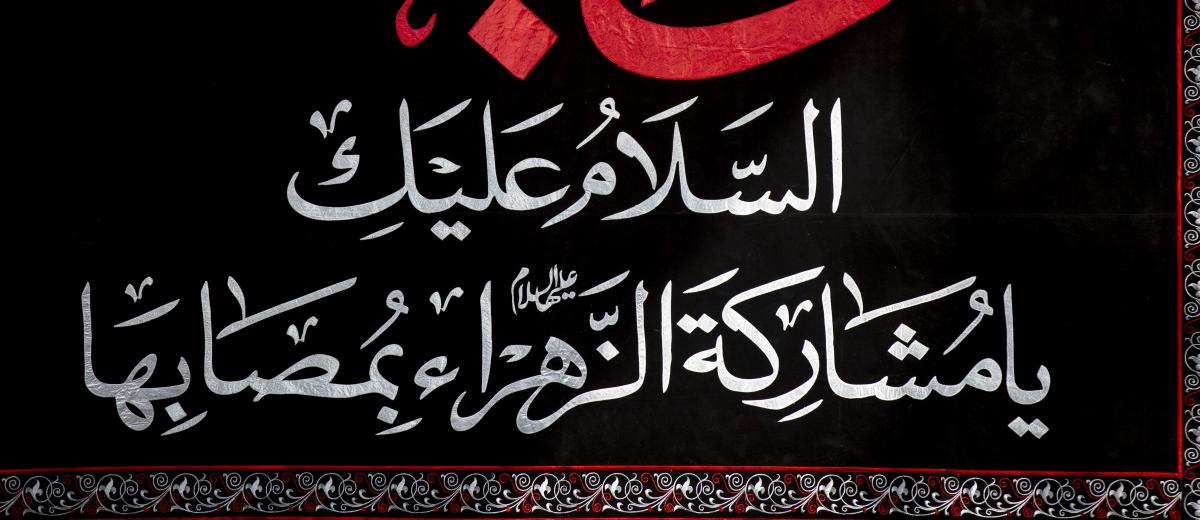 السَّلَامُ عَلَيْكِ
يا مُشَارِكَةَ الزَّهْراءِ عليها السلام بِمُصَابِهَا